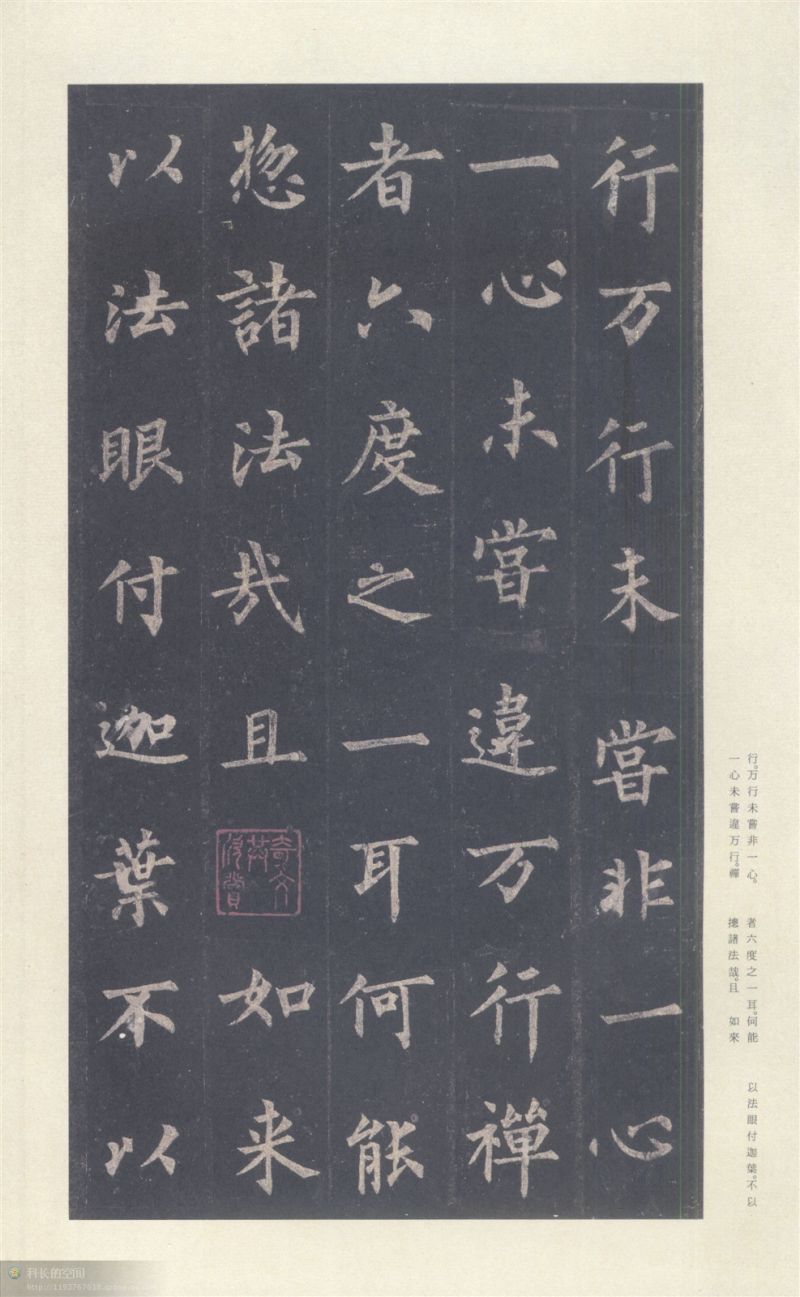 行万行未嘗非一心
一心未嘗違万行禪
者六度之一耳何能
捴諸法㢤且如来
以法眼付迦葉不以
奇文共欣賞
行。万行未嘗非一心。
一心未嘗違万行。禪
者六度之一耳。何能
摠諸法哉。且 如來
以法眼付迦葉。不以
科长的空间